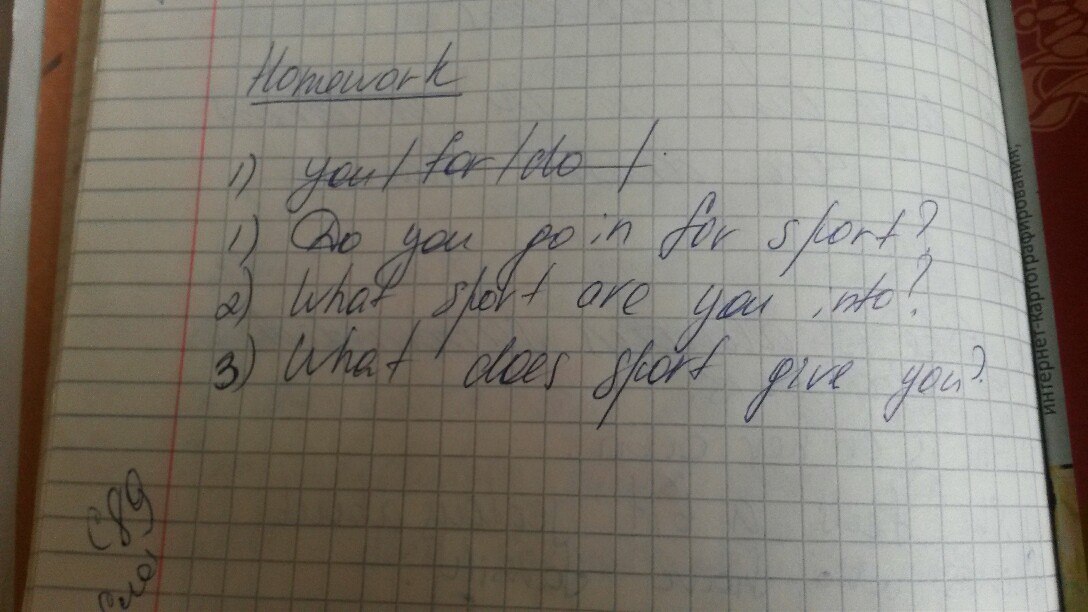 Homework
1) you / for / do /
1) Do you go in for sport?
2) What sport are you into?
3) What does sport give you?
(89
интернет-картографировании,